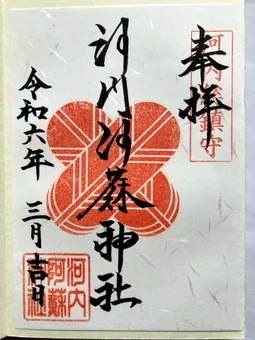 奉拝
河内
鎮守
河内阿蘇神社
令和六年 三月吉日
河内
阿蘇